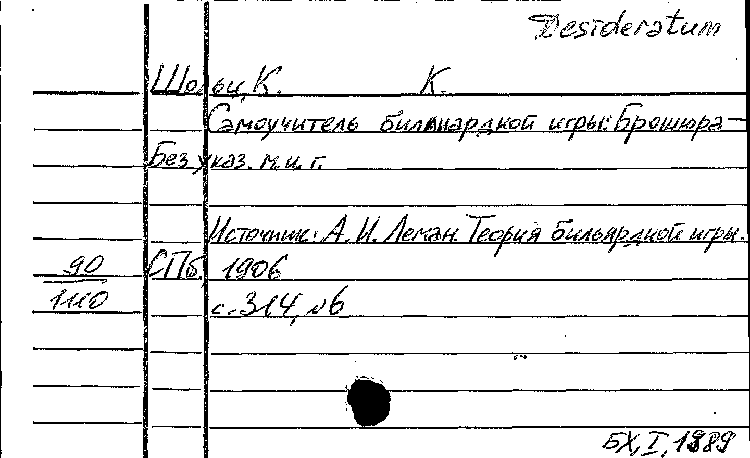 Desideratum
Шольц, К. К.
Самоучитель бильиардной игры: Брошюра —
Без указ. м. и г.
Источник: А. И. Леман. Теория бильярдной игры.
90 СПб, 1906
1110 с. 314, №6
БХ, I, 1989